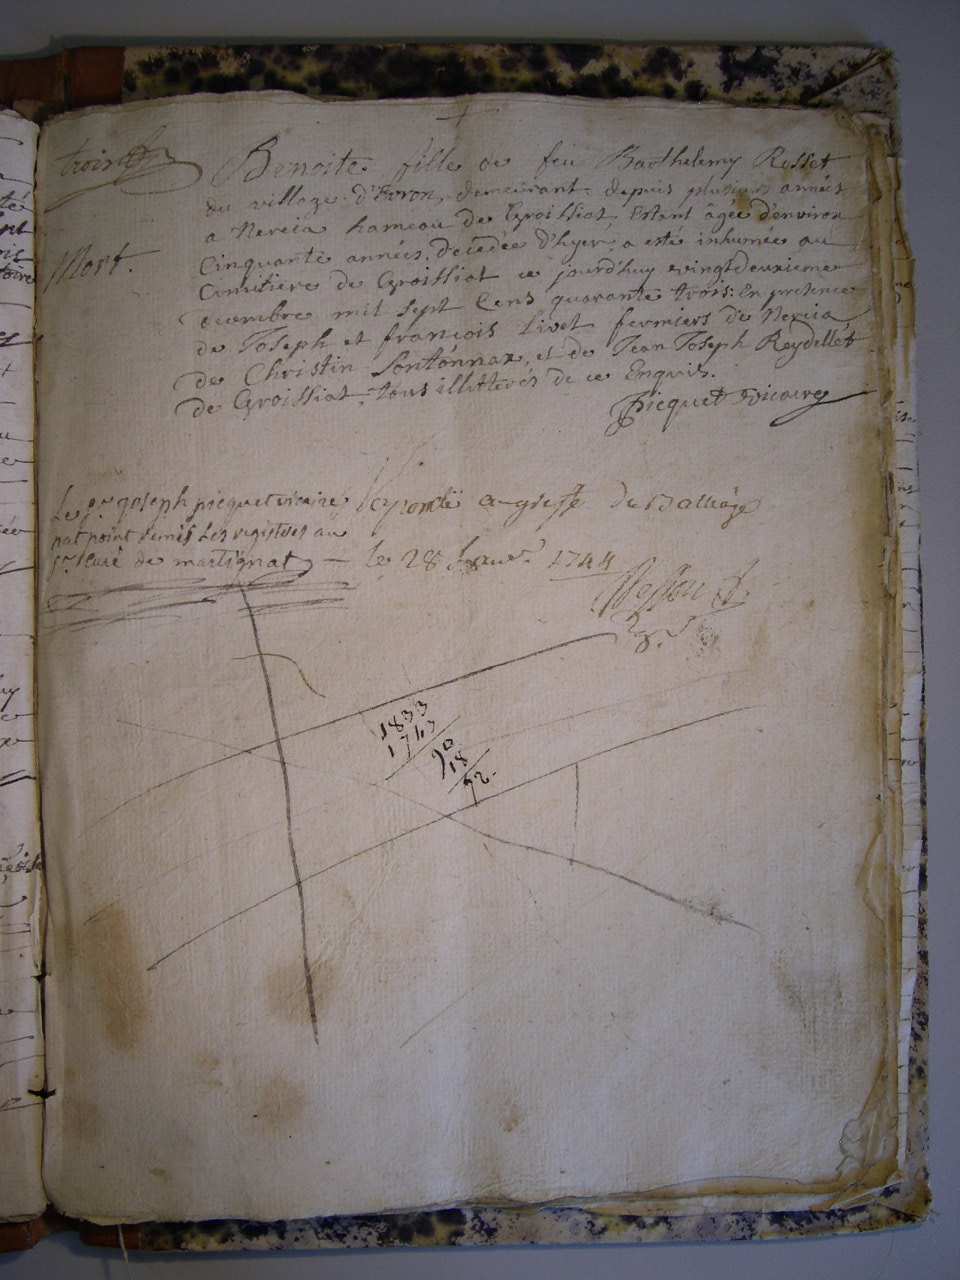 trois
Benoite fille de feu Barthelemy Rosset
du village d'Evron, demeurant depuis plusieurs années
a Nerciat hameau de Groissiat, Estant âgée d'environ
Mort.
Cinquante années, decedée d'hyer, a esté inhumée au
Cimitiere de Groissiat ce jourd'huy vingtdeuxieme
decembre mil sept Cens quarante trois: En presence
de Joseph et françois Livet fermiers de Nercia
de Christin Sontonnax, et de Jean Joseph Reydellet
de Groissiat, tous illitterés de ce Enquis.
Picquet vicaire
Le sr joseph picquet vicaire
nat point remis les registres au
sr Curé de martignat
au greffe du Balliage
le 28 Janver 1744
1833
1743
90
18
72.